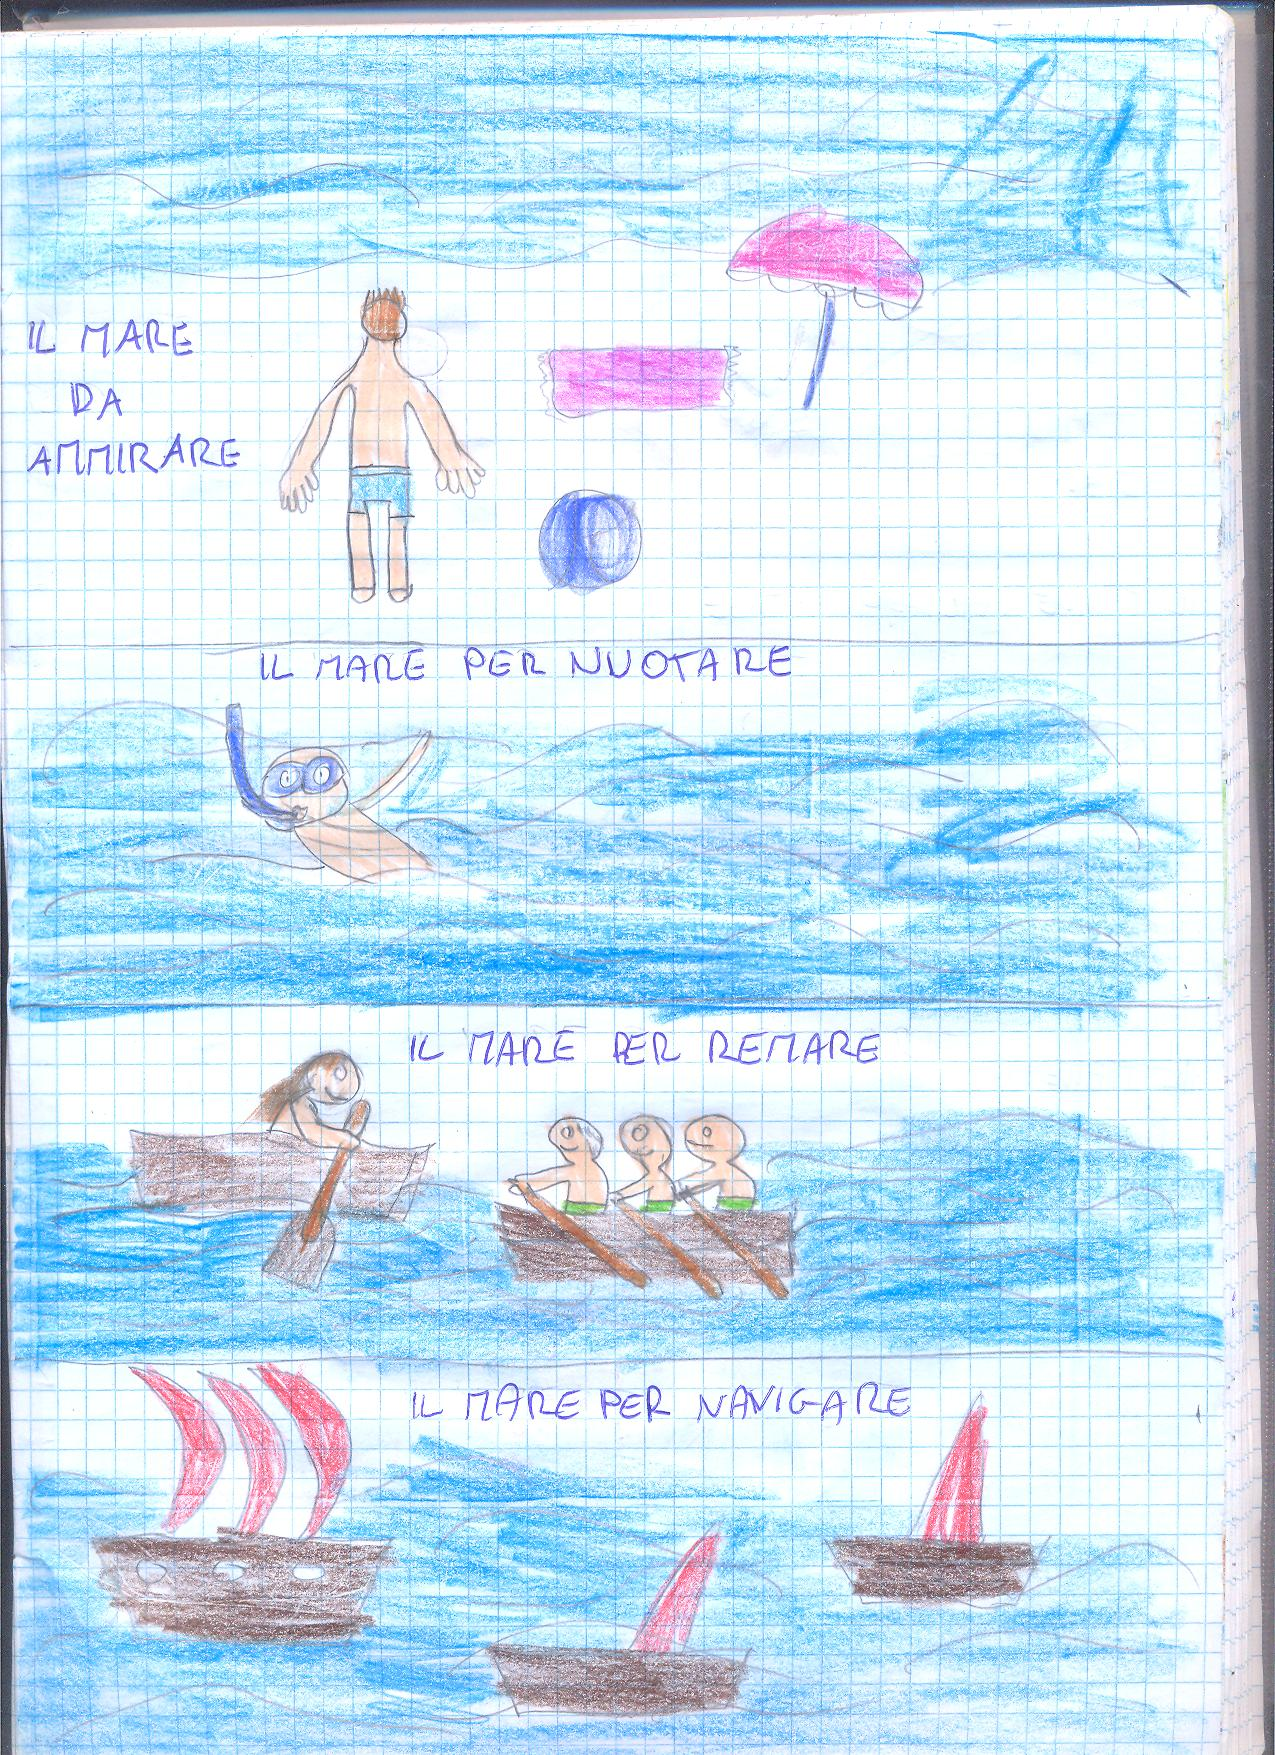 IL MARE
DA
AMMIRARE
IL MARE PER NUOTARE
IL MARE PER REMARE
IL MARE PER NAVIGARE